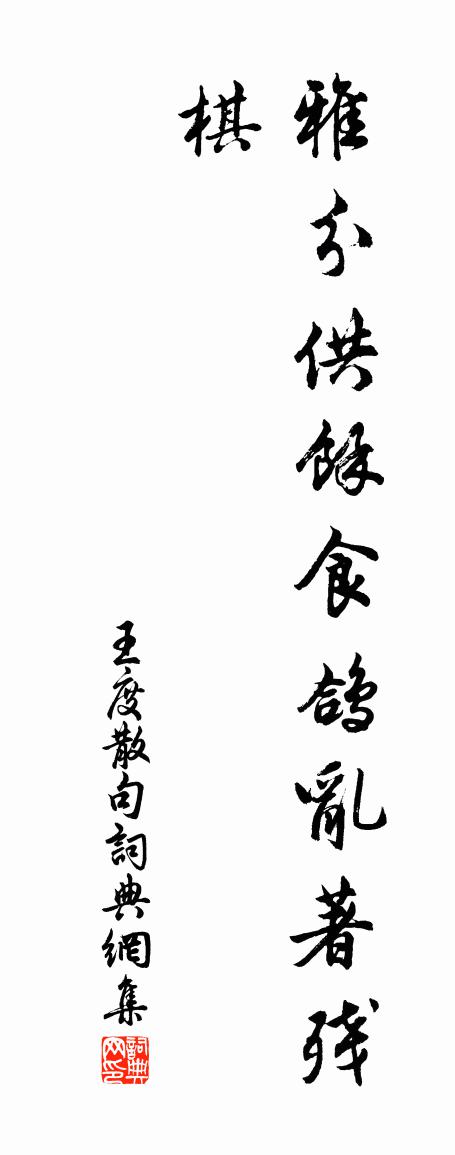 雅分供餘食鴿亂著殘
棋
王度散句詞典網集
詞典网印